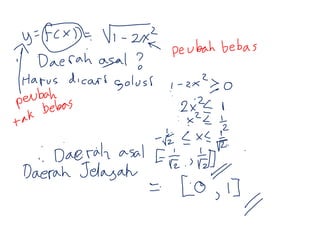 y = f(x) = √1 - 2x²
peubah bebas
Daerah asal ?
Harus dicari solusi
peubah
tak bebas
1 - 2x² ≥ 0
2x² ≤ 1
x² ≤ 1/2
-1/√2 ≤ x ≤ 1/√2
∴ Daerah asal [-1/√2, 1/√2]
Daerah Jelajah
= [0, 1]